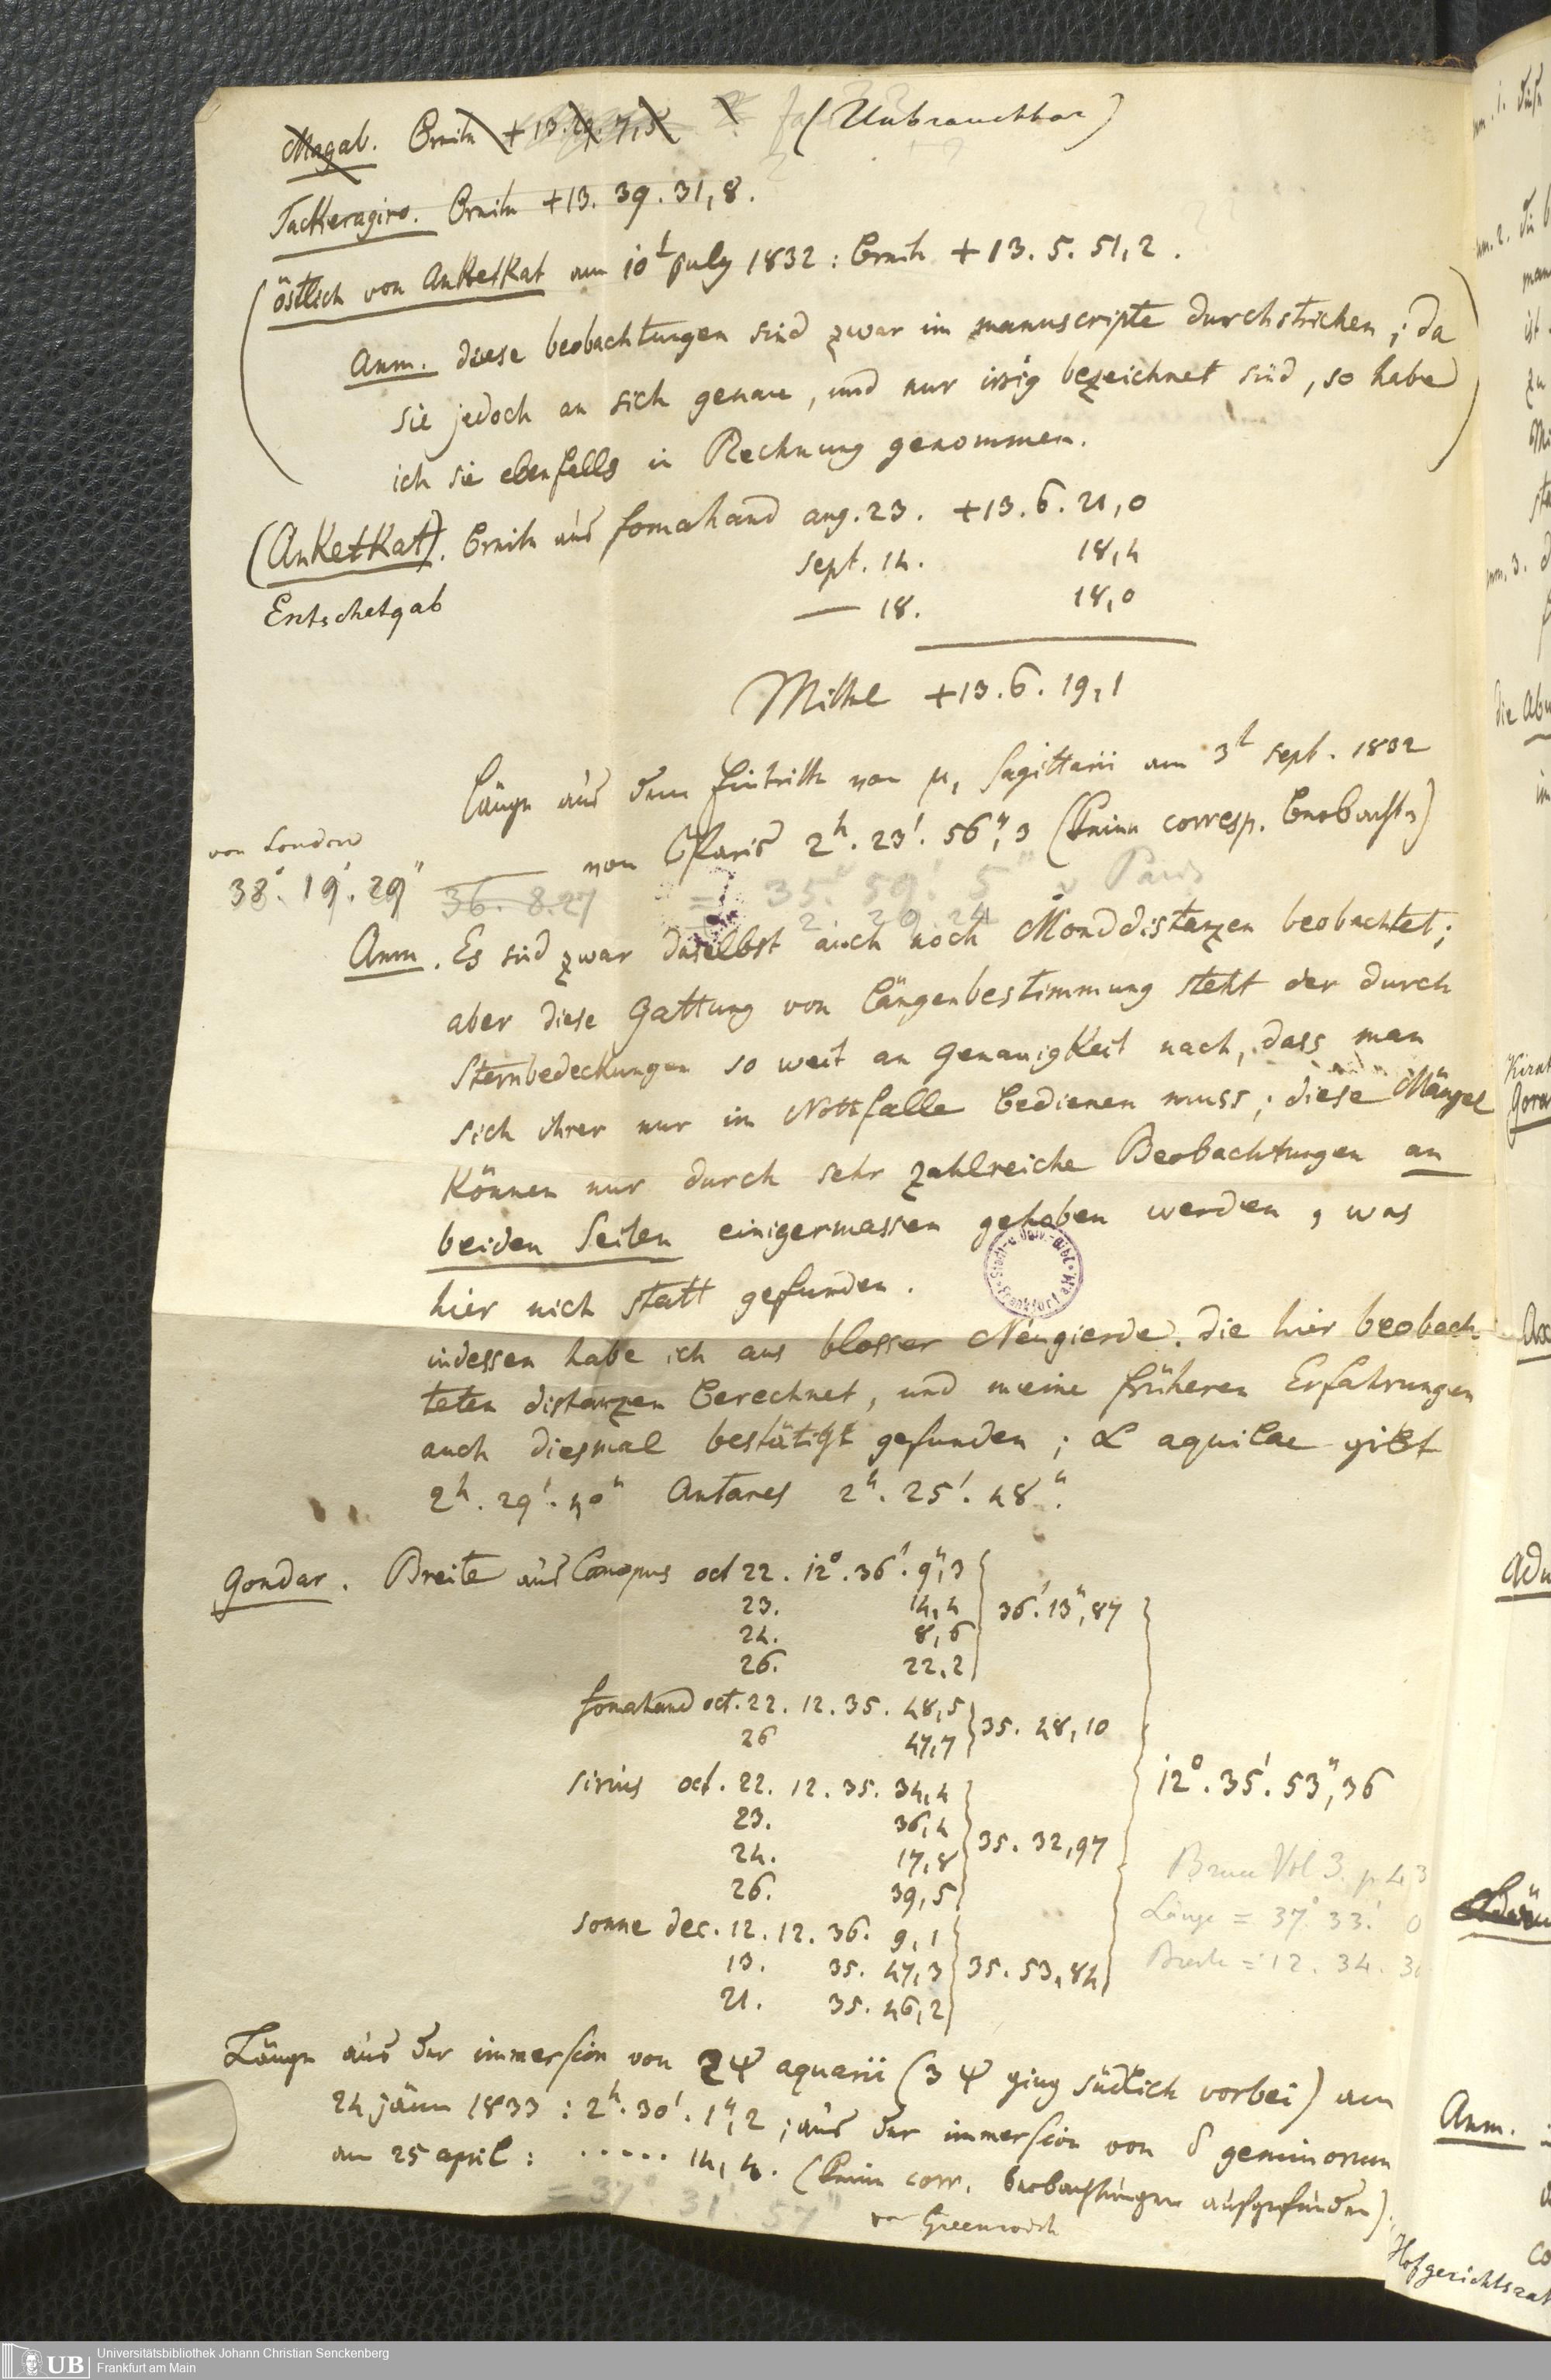 Magab. Breite +13.29.7,5 (Unbrauchbar)
Tackeragiro. Breite +13. 39. 31,8.
(östlich von AnKetKat am 10t July 1832 : Breite +13. 5. 51,2.
Anm. diese beobachtungen sind zwar im manuscripte durchstrichen; da
sie jedoch an sich genau, und nur irrig bezeichnet sind, so habe
ich sie ebenfalls in Rechnung genommen.)
(AnKetKat). Breite aus fomahand aug. 23. +13. 6. 21,0
Entschetgab
sept. 14. 18,4
— 18. 18,0
Mittel +13. 6. 19,1
Länge aus dem Eintritte von μ, Sagittarii am 3t sept. 1832
von Paris 2h. 23'. 56",3 (keine corresp. Beobacht.)
von London
38°. 19'. 29"
36. 8.27
= 35° 59' 5" v Paris
2. 29. 24
Anm. Es sind zwar daselbst auch noch Monddistanzen beobachtet;
aber diese Gattung von Längenbestimmung steht der durch
Sternbedeckungen so weit an Genauigkeit nach, dass man
sich ihrer nur im Nothfalle bedienen muss; diese Mängel
können nur durch sehr zahlreiche Beobachtungen an
beiden Seiten einigermassen gehoben werden, was
hier nich statt gefunden.
indessen habe ich aus blosser Neugierde, die hier beobach
teten distanzen berechnet, und meine früheren Erfahrungen
auch diesmal bestätigt gefunden; α aquilae gibt
2h. 29'. 40" Antares 2h. 25'. 48".
Gondar. Breite aus Canopus oct 22. 12°. 36'. 9",3
23. 14,4 36'. 13",87
24. 8,6
26. 22,2
fomahand oct. 22. 12. 35. 48,5 35. 48,10
26 47,7
sirius oct. 22. 12. 35. 34,4
12°. 35'. 53",36
23. 36,4 35. 32,97
24. 17,8
26. 39,5
Bruce Vol 3. p 43
Länge = 37° 33' 0
Breite = 12. 34. 3
sonne dec. 12. 12. 36. 9,1
13. 35. 47,3 35. 53,84
21. 35. 46,2
Länge aus der immersion von 2ψ aquarii (3 ψ ging südlich vorbei) am
24 jänn 1833 : 2h. 30'. 1",2 ; aus der immersion von δ geminorum
am 25 april : ..... 14,4. (keine corr. beobachtungen aufgefunden).
= 37° 31' 57" von Greenwich
Hofgerichtsrat
Anm.
Universitätsbibliothek Johann Christian Senckenberg
Frankfurt am Main
UB